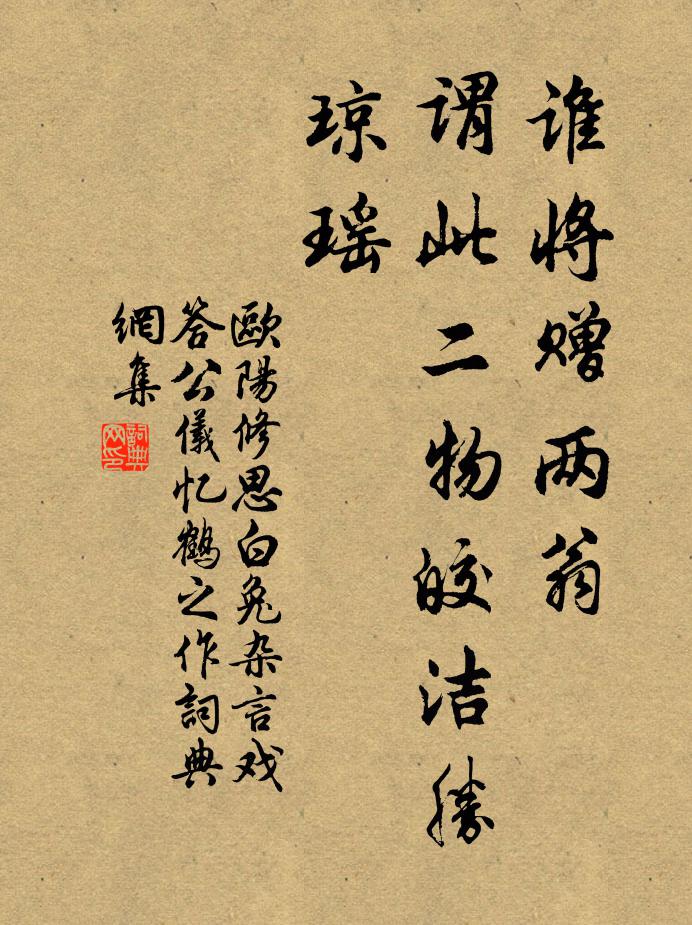 谁将赠两翁
谓此二物皎洁勝
琼瑶
歐陽修思白兔杂言戏
答公儀忆鶴之作詞典
網集
詞典
网印